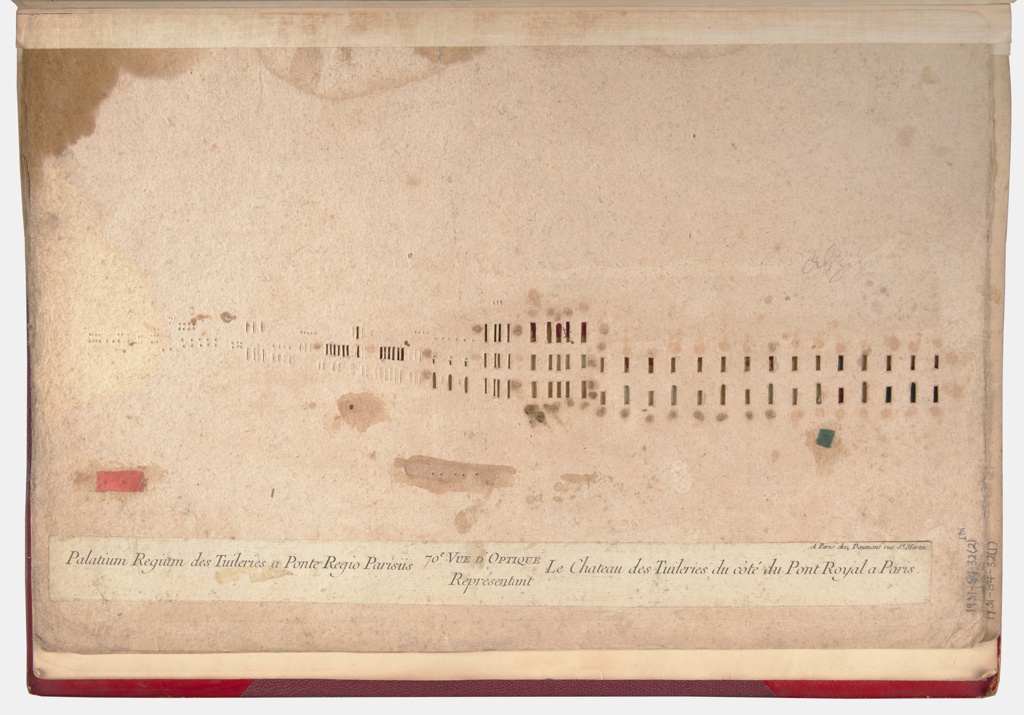 A Paris chez Daumont rue St. Martin
Palatium Regium des Tuileries a Ponte Regio Parisiis
70e. VUE D'OPTIQUE
Représentant
Le Chateau des Tuileries du côté du Pont Royal a Paris.
1931-84-32(2)
1931-84-32(1)